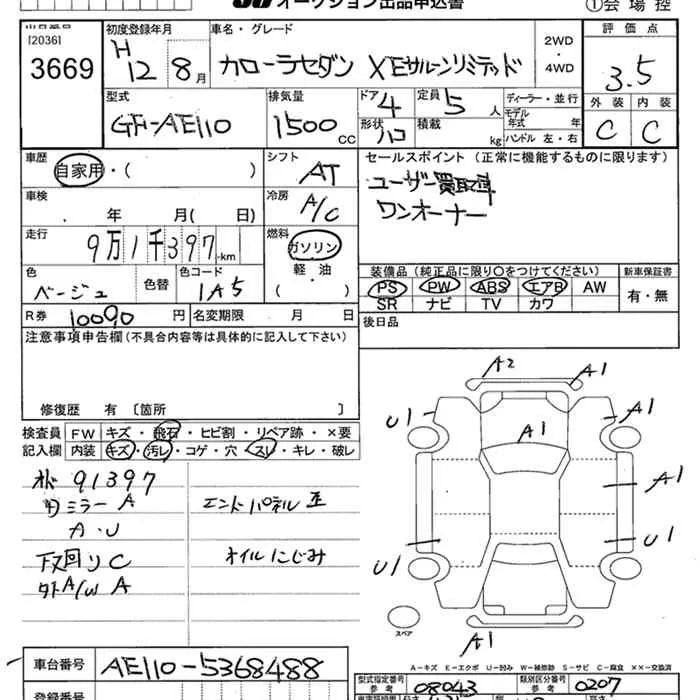 オークション出品申込書
①会場控
出品番号
[2036]
3669
初度登録年月
H 12 8月
車名・グレード
カローラセダン XEサルーンリミテッド
2WD・4WD
評価点
3.5
外装 内装
C C
型式
GF-AE110
排気量
1500cc
ドア 4
定員 5人
形状 ハコ
積載 kg
ディーラー・並行
モデル年式 年
ハンドル 左・右
車歴
自家用・( )
シフト
AT
セールスポイント(正常に機能するものに限ります)
ユーザー買取車
ワンオーナー
車検
年 月( 日)
冷房
A/C
走行
9万1千397km
燃料
ガソリン
軽油
( )
色
ベージュ
色替
色コード
1A5
装備品(純正品に限り○をつけてください)
新車保証書
PS PW ABS エアB AW
有・無
SR ナビ TV カワ
R券 10090円
名変期限 月 日
後日品
注意事項申告欄(不具合内容等は具体的に記入して下さい)
修復歴 有〔箇所 〕
検査員記入欄
FW キズ・飛石・ヒビ割・リペア跡・×要
内装 キズ・汚レ・コゲ・穴・スレ・キレ・破レ
91397
ミラー A
エンドパネル 歪
A・U
下回り C
オイルにじみ
外A/W A
A2
A1
U1
A1
A1
A1
U1
U1
A1
スペア
A-キズ E-エクボ U-凹み W-補修跡 S-サビ C-腐食 ××-交換済
車台番号
AE110-5368488
型式指定番号
参考
08043
類別区分番号
参考
0207
登録番号